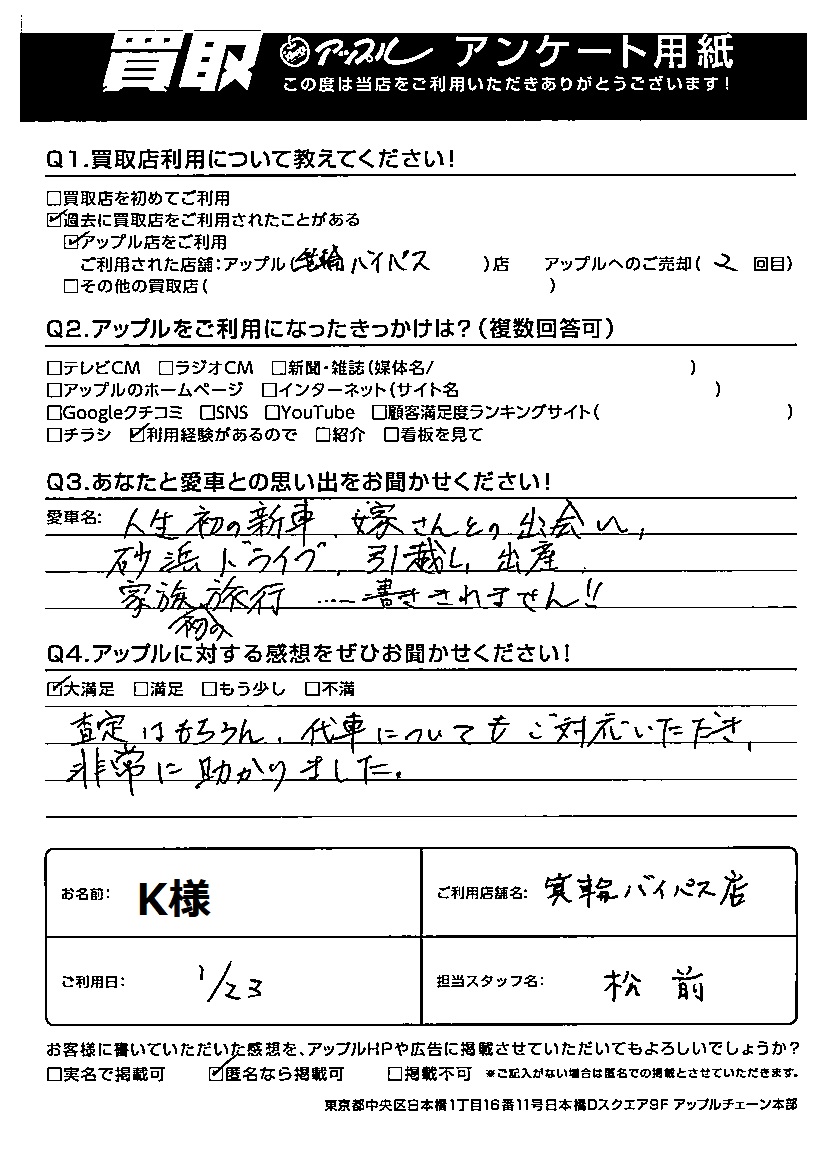 買取 アップル アンケート用紙
この度は当店をご利用いただきありがとうございます!
Q1.買取店利用について教えてください!
□買取店を初めてご利用
☑過去に買取店をご利用されたことがある
☑アップル店をご利用
ご利用された店舗:アップル(箕輪バイパス)店 アップルへのご売却(2回目)
□その他の買取店( )
Q2.アップルをご利用になったきっかけは?(複数回答可)
□テレビCM □ラジオCM □新聞・雑誌(媒体名/ )
□アップルのホームページ □インターネット(サイト名 )
□Googleクチコミ □SNS □YouTube □顧客満足度ランキングサイト( )
□チラシ ☑利用経験があるので □紹介 □看板を見て
Q3.あなたと愛車との思い出をお聞かせください!
愛車名: 人生初の新車、嫁さんとの出会い、
砂浜ドライブ、引越し、出産、
家族旅行 ……書ききれません!!
初の
Q4.アップルに対する感想をぜひお聞かせください!
☑大満足 □満足 □もう少し □不満
査定はもちろん、代車についてもご対応いただき、
非常に助かりました。
お名前: K様 ご利用店舗名: 箕輪バイパス店
ご利用日: 1/23 担当スタッフ名: 松前
お客様に書いていただいた感想を、アップルHPや広告に掲載させていただいてもよろしいでしょうか?
□実名で掲載可 ☑匿名なら掲載可 □掲載不可 ※ご記入がない場合は匿名での掲載とさせていただきます。
東京都中央区日本橋1丁目16番11号日本橋Dスクエア9F アップルチェーン本部